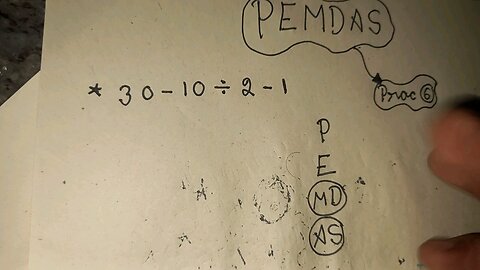 PEMDAS
Prvoc ⑥
* 30-10÷2-1
P
E
MD
AS